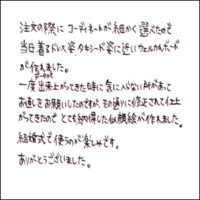 注文の際にコーディネートが細かく選べたので
当日着るドレス姿、タキシード姿に近いウェルカムボード
が作れました。
一度出来上がってきた時に気に入らない所があって
お直しをお願いしたのですが、その通りに修正されて仕上
がってきたので とても納得した似顔絵が作れました。
結婚式で使うのが楽しみです。
ありがとうございました。